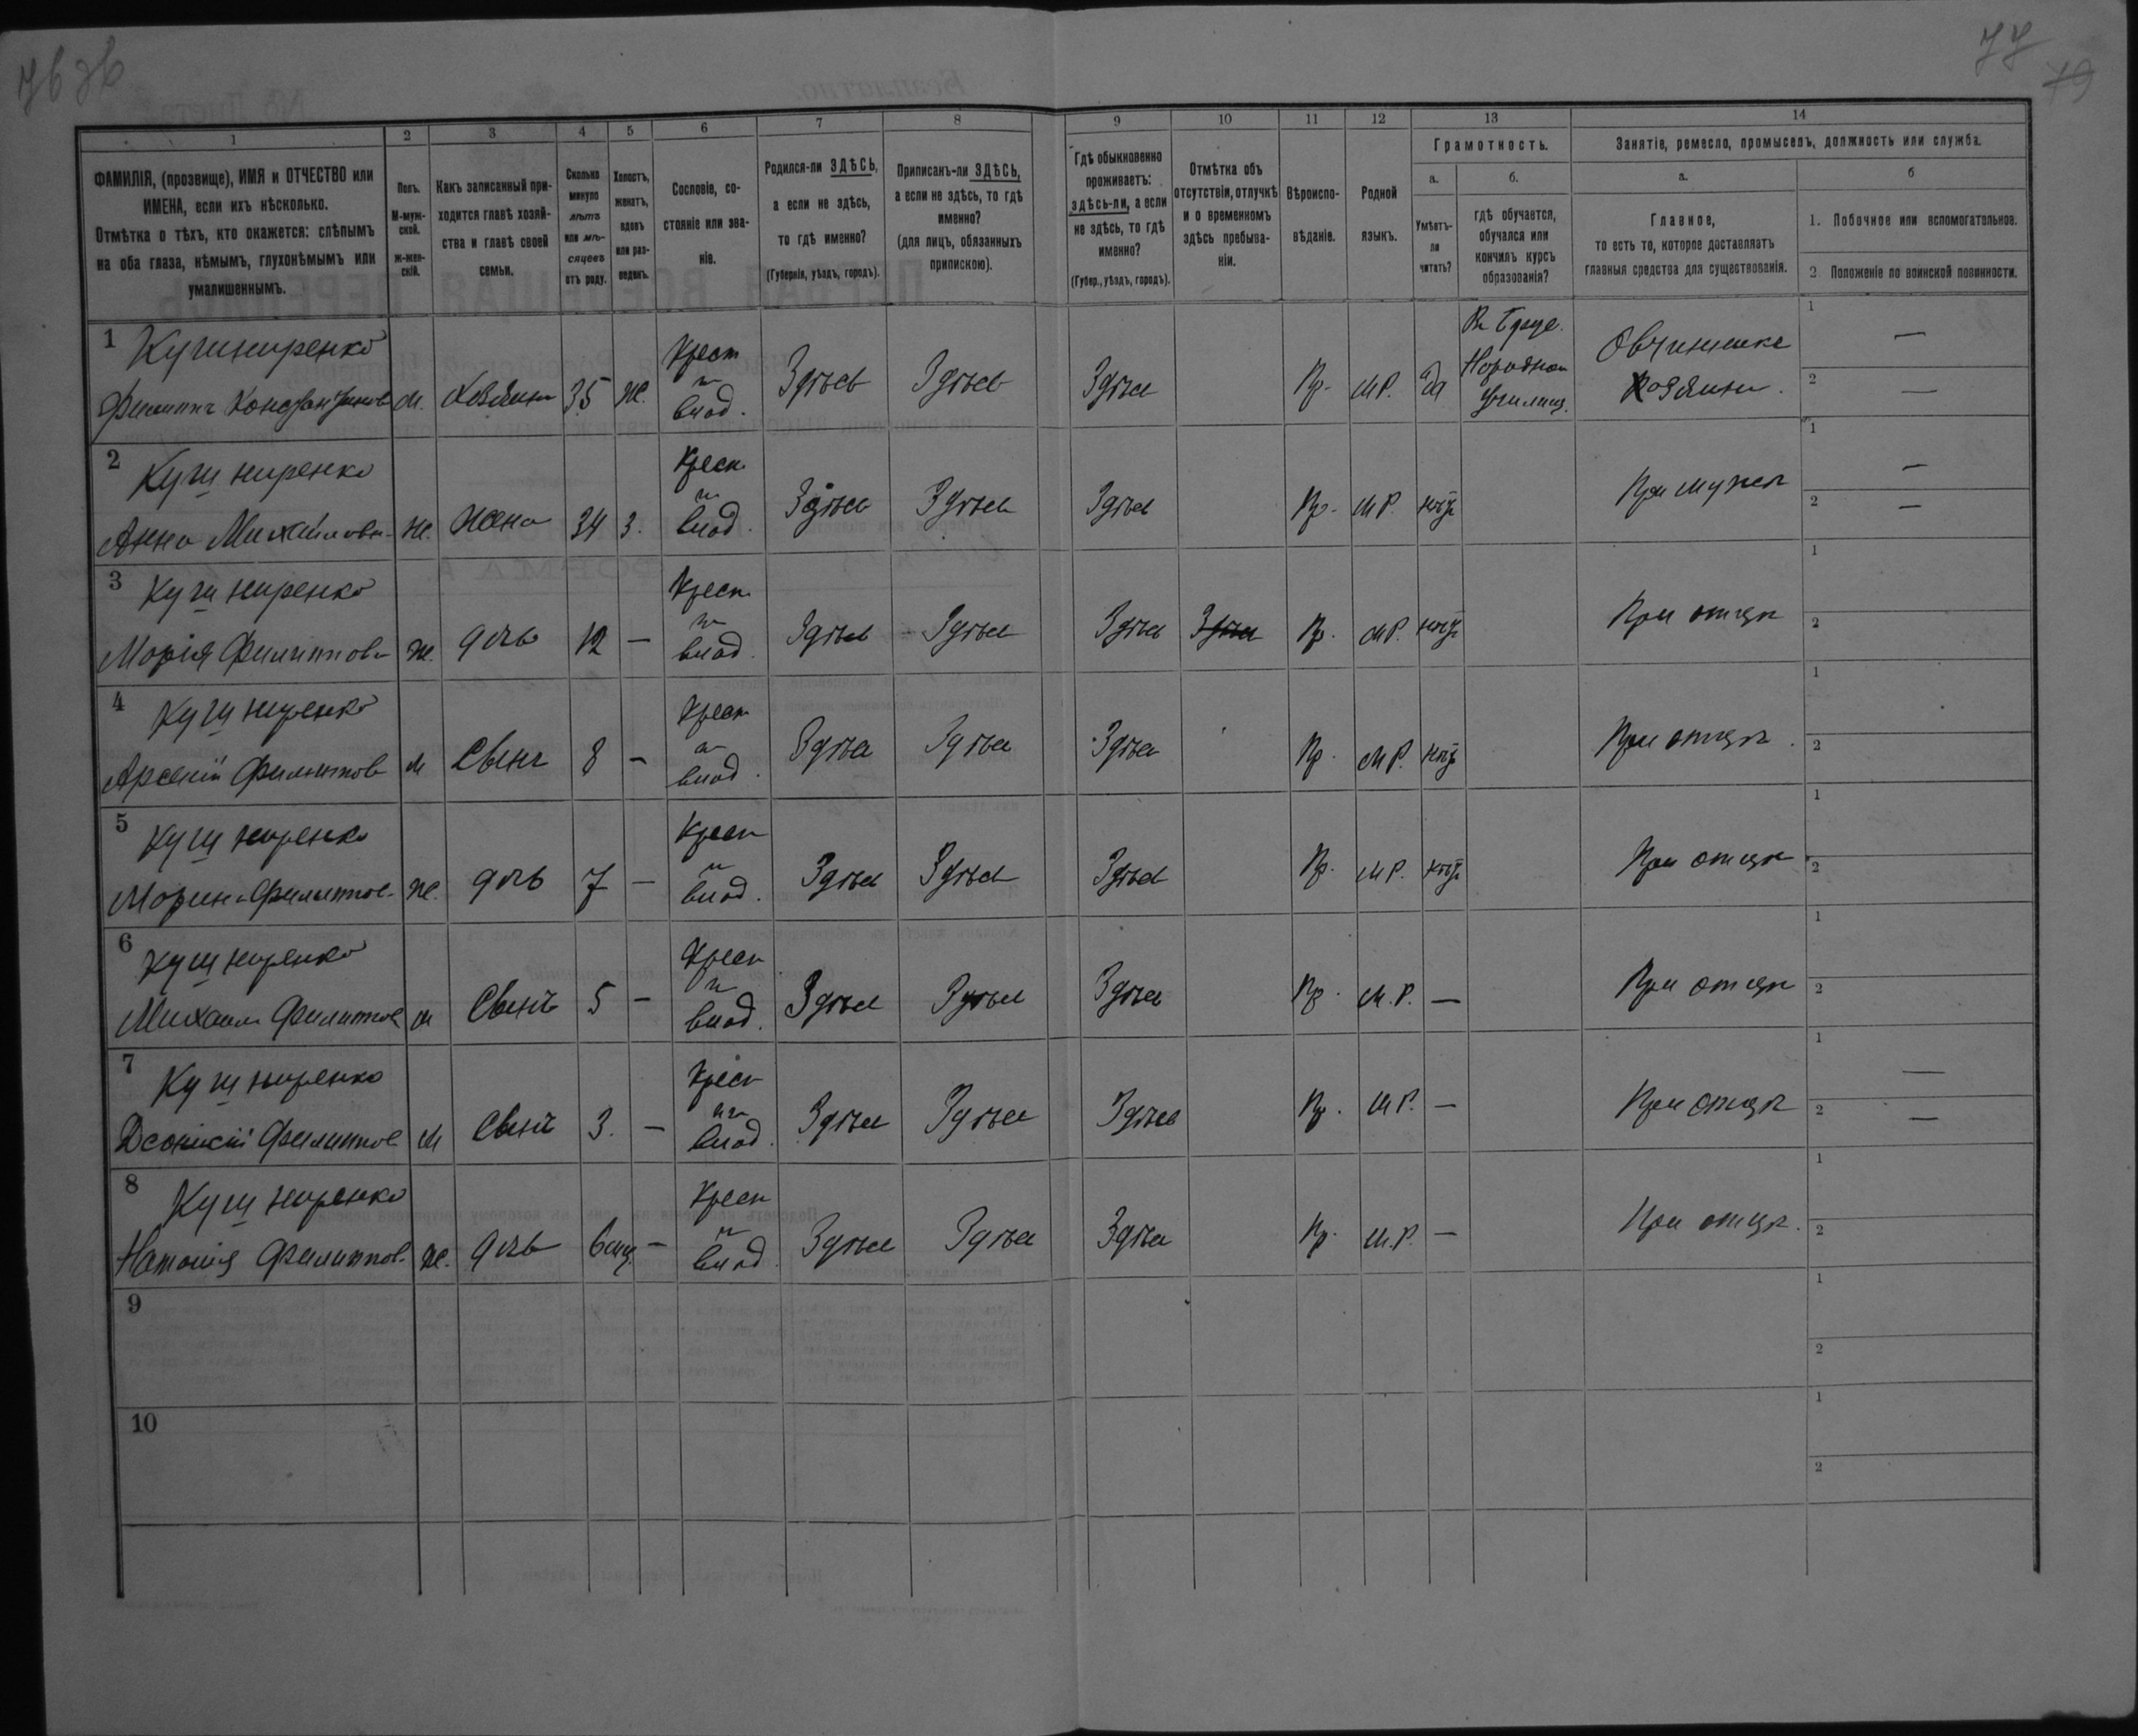 76 об
77
79
1
2
3
4
5
6
7
8
9
10
11
12
13
14
ФАМИЛІЯ, (прозвище), ИМЯ и ОТЧЕСТВО или
ИМЕНА, если ихъ нѣсколько.
Отмѣтка о тѣхъ, кто окажется: слѣпымъ
на оба глаза, нѣмымъ, глухонѣмымъ или
умалишеннымъ.
Полъ.
М-муж-
ской.
Ж-жен-
скій.
Какъ записанный при-
ходится главѣ хозяй-
ства и главѣ своей
семьи.
Сколько
минуло
лѣтъ
или мѣ-
сяцевъ
отъ роду.
Холостъ,
женатъ,
вдовъ
или раз-
веденъ.
Сословіе, со-
стояніе или зва-
ніе.
Родился-ли ЗДѢСЬ,
а если не здѣсь,
то гдѣ именно?
(Губернія, уѣздъ, городъ).
Приписанъ-ли ЗДѢСЬ,
а если не здѣсь, то гдѣ
именно?
(для лицъ, обязанныхъ
припискою).
Гдѣ обыкновенно
проживаетъ:
здѣсь-ли, а если
не здѣсь, то гдѣ
именно?
(Губер., уѣздъ, городъ).
Отмѣтка объ
отсутствіи, отлучкѣ
и о временномъ
здѣсь пребыва-
ніи.
Вѣроиспо-
вѣданіе.
Родной
языкъ.
Грамотность.
а.
Умѣетъ-
ли
читать?
б.
гдѣ обучается,
обучался или
кончилъ курсъ
образованія?
Занятіе, ремесло, промыселъ, должность или служба.
а.
Главное,
то есть то, которое доставляетъ
главныя средства для существованія.
б
1. Побочное или вспомогательное.
2. Положеніе по воинской повинности.
1 Кушниренко
Филиппъ Константинов М. Хозяинъ 35 Ж. Крест изъ влад. Здѣсь Здѣсь Здѣсь Пр. М.Р. да
Народном
Училищ.
Овчинника
Хозяинъ.
1 —
2 —
2 Кушниренко
Анна Михайловн. Ж. Жена 34 З. Крест изъ влад. Здѣсь Здѣсь Здѣсь Пр. М.Р. нѣтъ При мужѣ
1 —
2 —
3 Кушниренко
Марія Филиппова Ж. дочь 12 — Крест изъ влад. Здѣсь Здѣсь Здѣсь Здѣсь Пр. М.Р. нѣтъ При отцѣ
1
2
4 Кушниренко
Арсеній Филиппов М Сынъ 8 — Крест изъ влад. Здѣсь Здѣсь Здѣсь Пр. М.Р. нѣтъ При отцѣ.
1
2
5 Кушниренко
Марина Филиппов. Ж. дочь 7 — Крест изъ влад. Здѣсь Здѣсь Здѣсь Пр. М.Р. нѣтъ При отцѣ
1
2
6 Кушниренко
Михаилъ Филиппов М Сынъ 5 — Крест изъ влад. Здѣсь Здѣсь Здѣсь Пр. М.Р. — При отцѣ
1
2
7 Кушниренко
Филиппов М Сынъ 3. — Крест изъ влад. Здѣсь Здѣсь Здѣсь Пр. М.Р. — При отцѣ
1 —
2 —
8 Кушниренко
Наталія Филиппов. Ж. дочь 6 мц. — Крест изъ влад. Здѣсь Здѣсь Здѣсь Пр. М.Р. — При отцѣ.
1
2
9
1
2
10
1
2